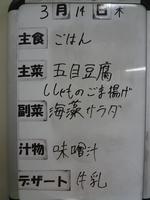 3月14日木
主食 ごはん
主菜 五目豆腐
ししゃものごま揚げ
副菜 海藻サラダ
汁物 味噌汁
デザート 牛乳